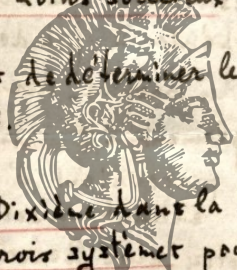 de déterminer le
Dixième dans la
rois systèmes pa